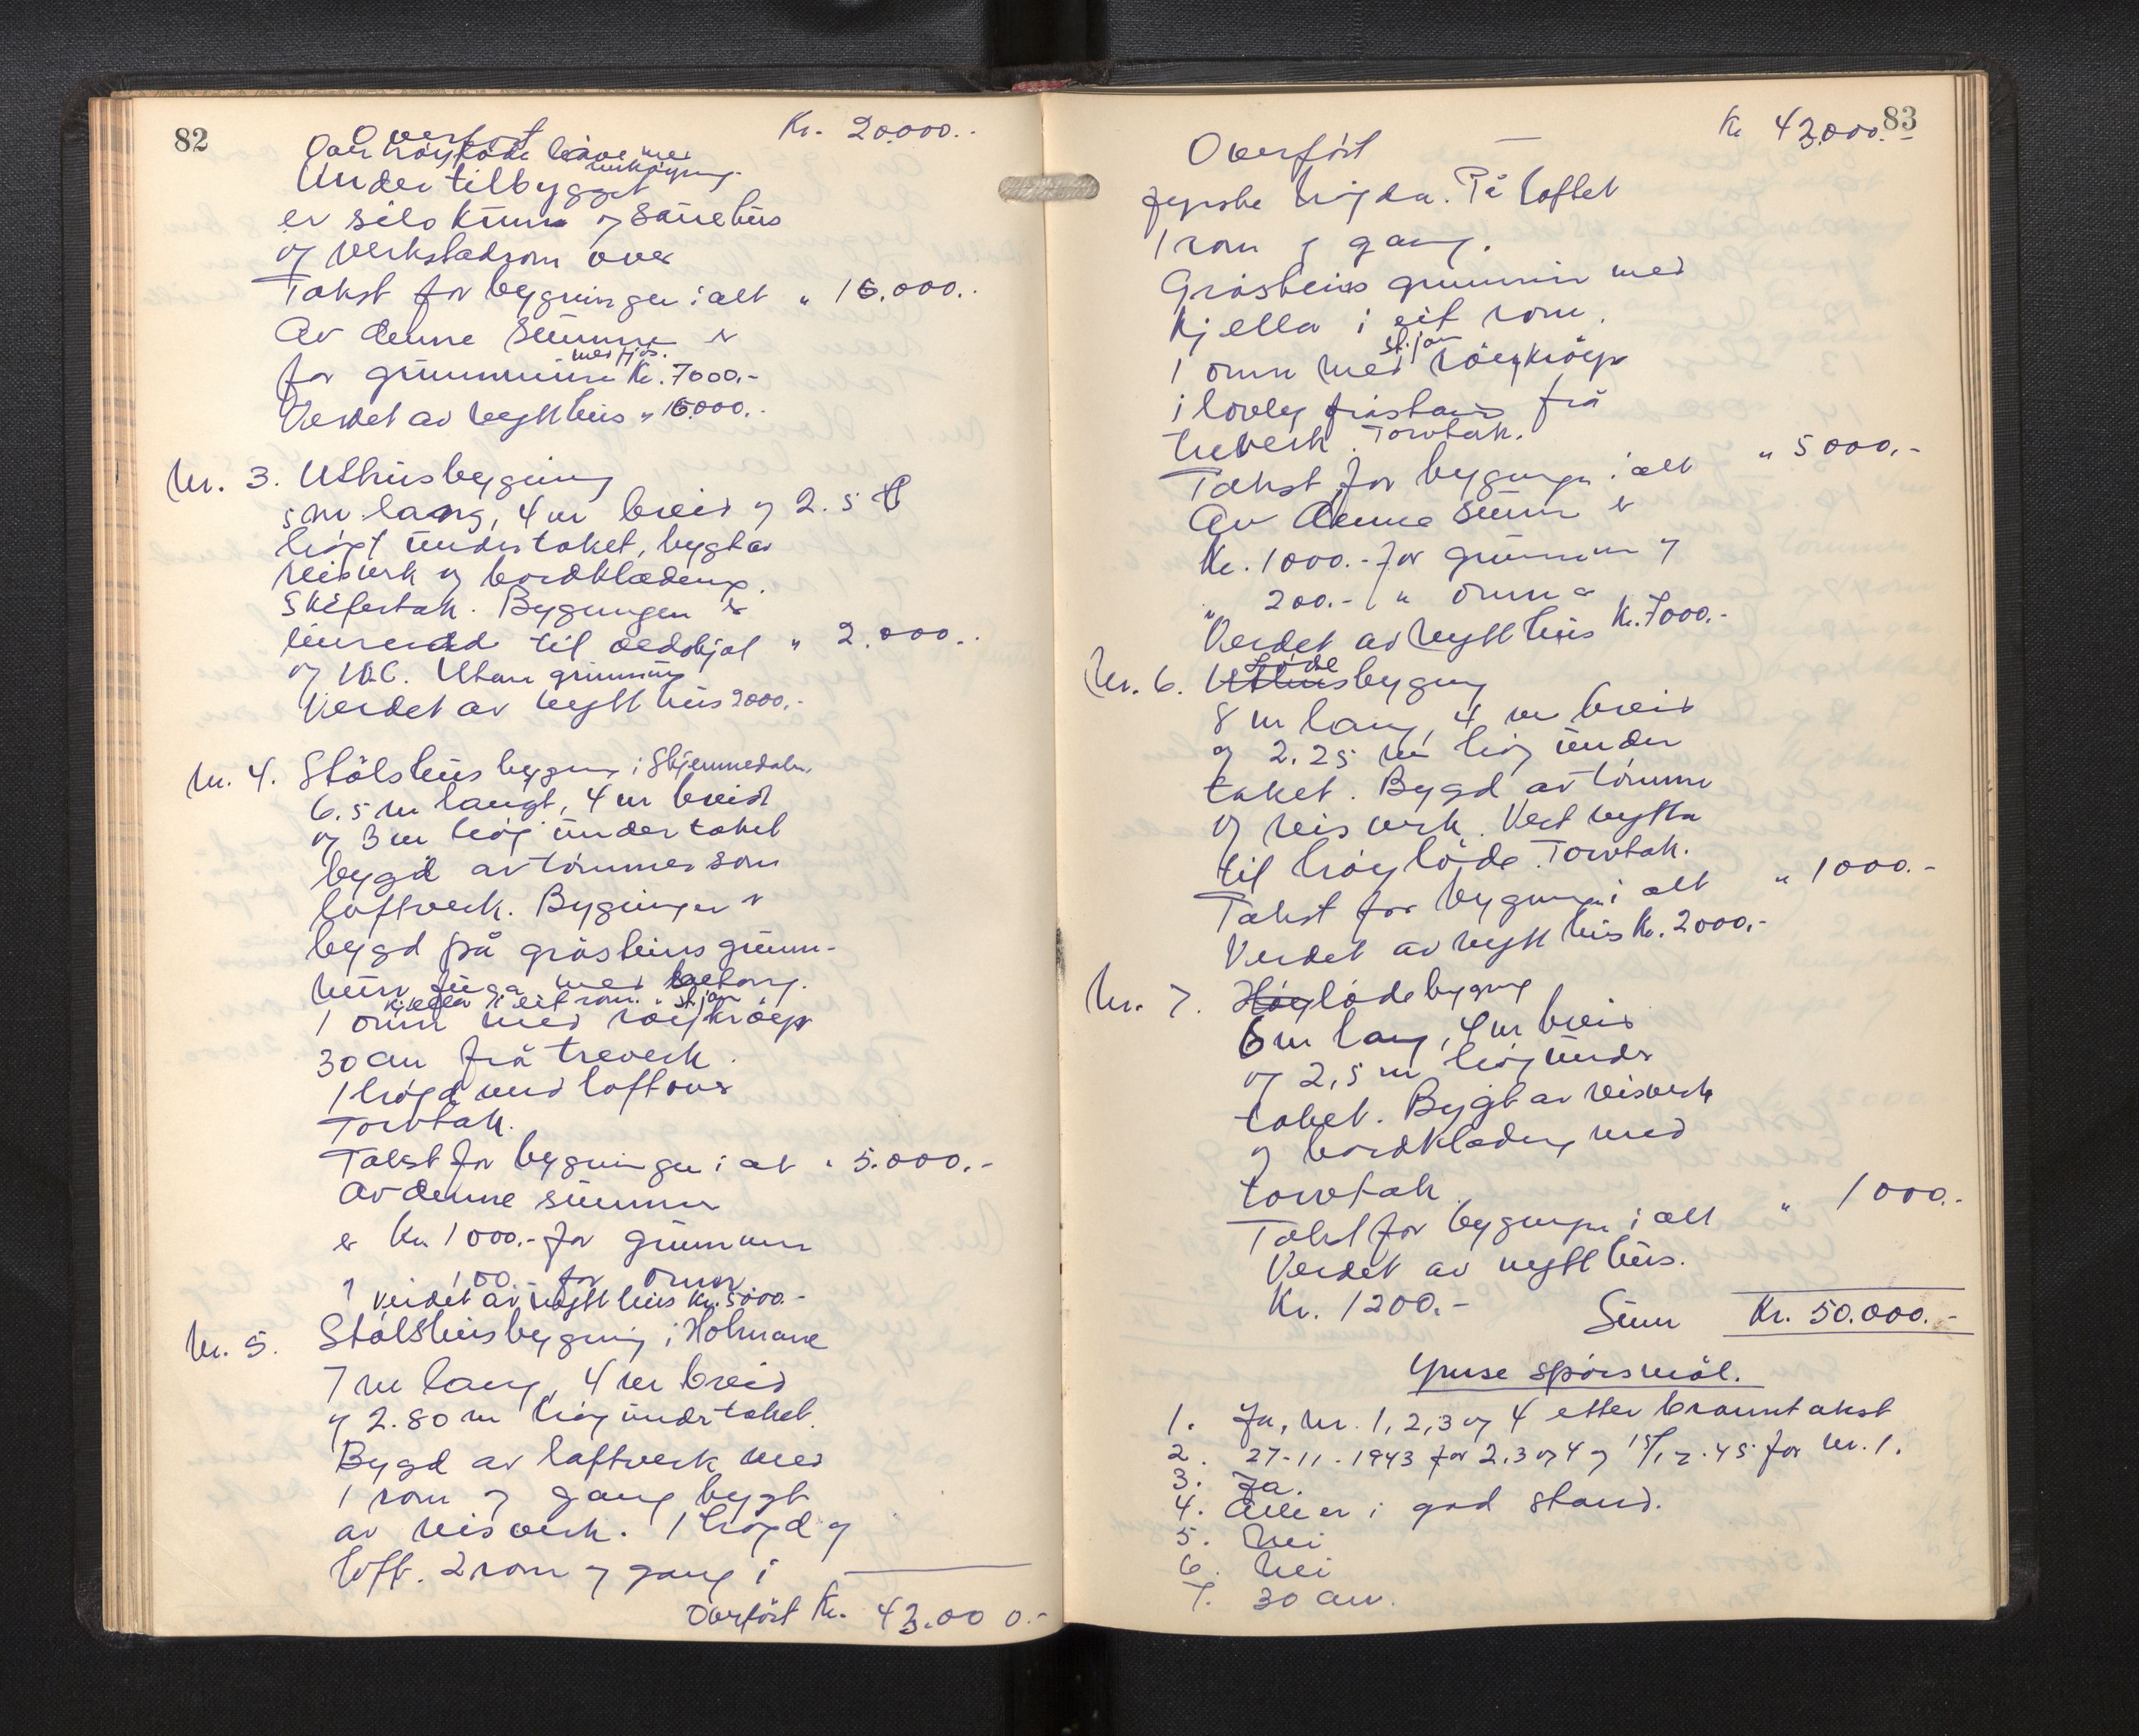 82
Overført Kr. 20.000.-
Over høyløde låve med
innkjøyring.
Under tilbygget
er silo kum og sauehus
og verkstadrom over
Takst for bygningen i alt " 16.000.-
Av denne summen er
med fjøs.
for grunnmuren Kr. 7000.-
Verdet av nytt hus " 16000.-
Nr. 3. Uthusbygning
5 m lang, 4 m breid og 2.5
høgt under taket, bygt av
reisverk og bordklædning.
Skifertak. Bygningen er
innreidd til eldhjol " 2.000.-
og W.C. Utan grunnmur
Verdet av nytt hus 2000.-
Nr. 4. Stølshusbygning i Skjemmedalen.
6.5 m langt, 4 m breid
og 3 m høg under taket
bygd av tømmer som
laftverk. Bygningen er
bygd på gråsteins grunn-
mur fuga med betong.
kjellar i eit rom. stjør
1 omn med røykrøyr
30 cm frå treverk.
1 høgd med loft over
Torvtak.
Takst for bygningen i alt " 5.000.-
Av denne summen
er Kr. 1000.- for grunnmur
" 100.- for omn
Verdet av nytt hus Kr. 5000.-
Nr. 5. Stølshusbygning i Holmane
7 m lang, 4 m breid
og 2.80 m høg under taket.
Bygd av laftverk med
1 rom og gang bygt
av reisverk. 1 høgd og
loft. 2 rom og gang i
Overført Kr. 43.000.-
83
Overført Kr 43.000.-
fyrste høgda. På loftet
1 rom og gang.
Gråsteins grunnmur med
kjellar i eit rom.
1 omn med røykrøyr
i lovleg fråstand frå
treverk. Torvtak.
Takst for bygningen i alt " 5000.-
Av denne summ er
Kr. 1000.- for grunnmur og
" 200.- " omnen
Verdet av nytt hus Kr. 7000.-
Løde
Nr. 6. Uthusbygning
8 m lang, 4 m breid
og 2.25 m høg under
taket. Bygd av tømmer
og reisverk. Vert nytta
til høyløde. Torvtak.
Takst for bygningen i alt " 1000.-
Verdet av nytt hus Kr. 2000.-
Nr. 7. Høylødebygning
6 m lang, 4 m breid
og 2,5 m høg under
taket. Bygt av reisverk
og bordklædning med
torvtak.
Takst for bygningen i alt " 1000.-
Verdet av nytt hus.
Kr. 1200.-
Sum Kr. 50.000.-
Ymse spørsmål.
1. Ja, Nr. 1, 2, 3 og 4 etter branntakst
2. 27-11-1943 for 2, 3 og 4 og 15/12-45 for Nr. 1.
3. Ja.
4. Alle er i god stand.
5. Nei
6. Nei
7. 30 cm.